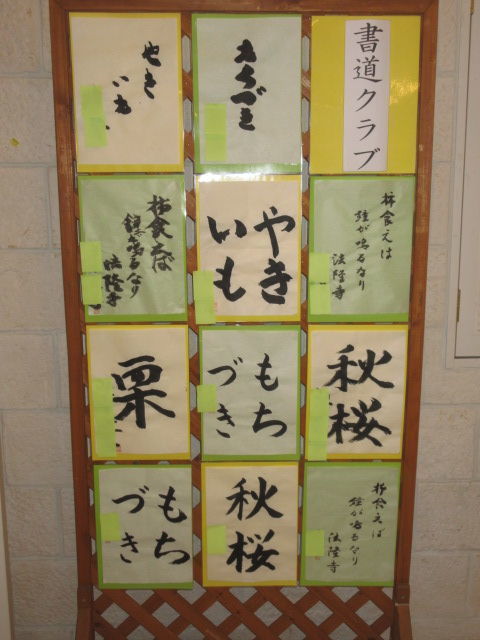 書道クラブ
もちづき
やき
いも
柿食えは
鐘が鳴るなり
法隆寺
やき
いも
柿食えば
鐘が鳴るなり
法隆寺
秋桜
もち
づき
栗
柿食えば
鐘が鳴るなり
法隆寺
秋桜
もち
づき